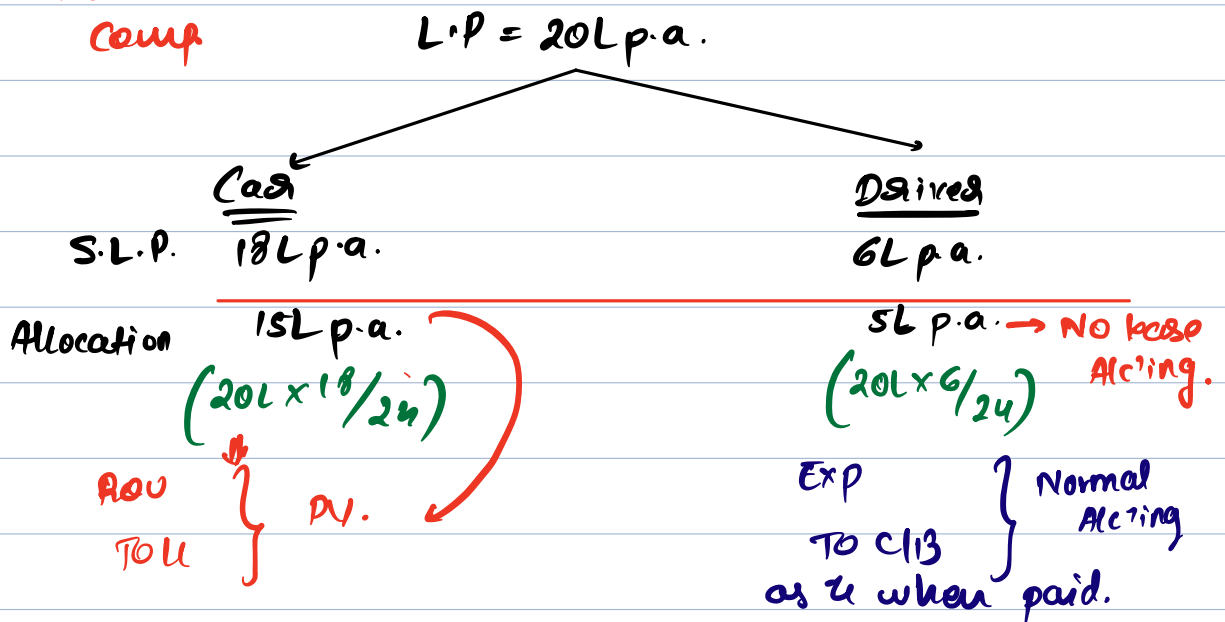 Comp L.P = 20L p.a.
Car Driver
S.L.P. 18L p.a. 6L p.a.
Allocation 15L p.a. 5L p.a. → No lease A/c'ing.
(20L x 18/24) (20L x 6/24)
ROU } PV. Exp } Normal A/c'ing
TO LL TO C/B
as & when paid.